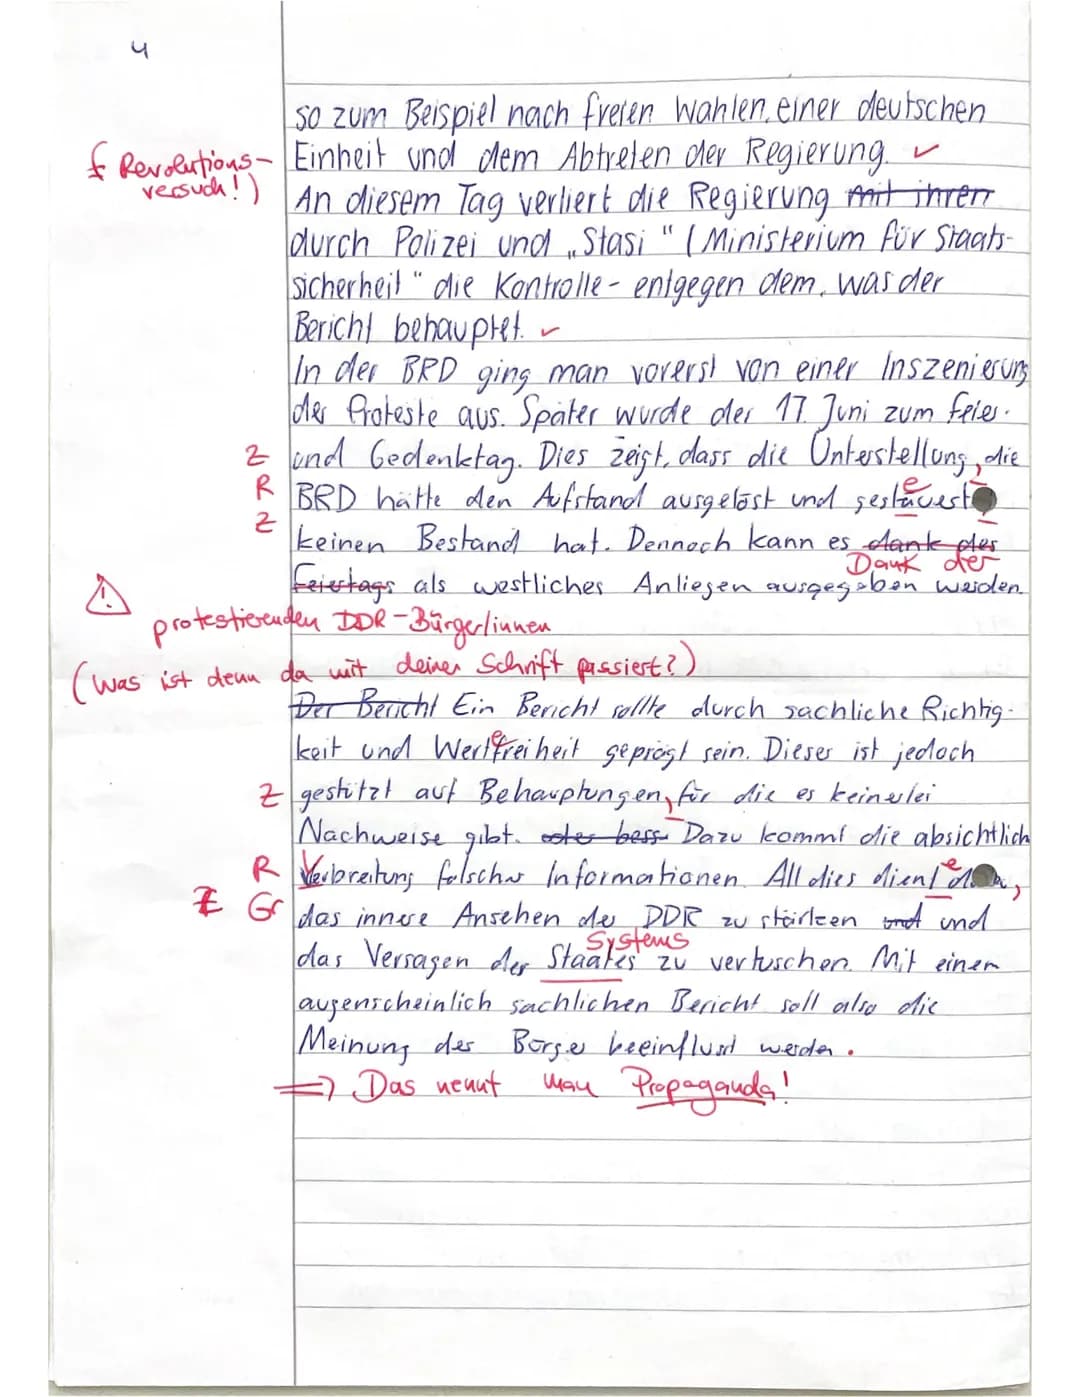 4
so zum Beispiel nach freien Wahlen, einer deutschen
f Revolutions- Einheit und dem Abtreten der Regierung. ✓
versuch!)
An diesem Tag verliert die Regierung mit ihren
durch Polizei und „Stasi" (Ministerium für Staats-
sicherheit" die Kontrolle - entgegen dem, was der
Bericht behauptet. ✓
In der BRD ging man vorerst von einer Inszenierung
der Proteste aus. Später wurde der 17. Juni zum Feier-
Z und Gedenktag. Dies zeigt, dass die Unterstellung, die
R BRD hätte den Aufstand ausgelöst und gestäuert
e
Z keinen Bestand hat. Dennoch kann es dank des
Dank der
Feiertags als westliches Anliegen ausgegeben werden.
protestierenden DDR-Bürger/innen
(Was ist denn da mit deiner Schrift passiert?)
Der Bericht Ein Bericht sollte durch sachliche Richtig-
keit und Wertefreiheit geprägt sein. Dieser ist jedoch
Z gestützt auf Behauptungen, für die es keinerlei
Nachweise gibt. oder bess Dazu kommt die absichtlich
e
R Verbreitung falscher Informationen. All dies dient
Z Gr das innere Ansehen der DDR zu stärken und und
Systems
das Versagen der Staates zu vertuschen. Mit einem
augenscheinlich sachlichen Bericht soll also die
Meinung der Bürger beeinflusst werden.
=> Das nennt man Propaganda!